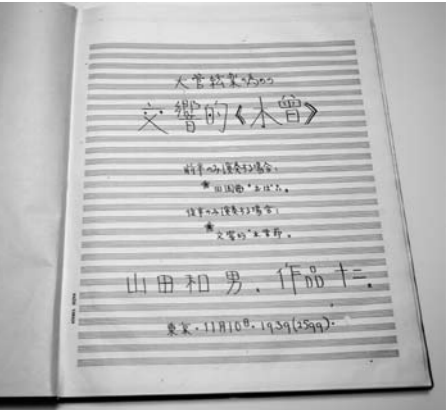 大管絃楽の為の
交響的《木曽》
前半のみ演奏する場合:
後半のみ演奏する場合:
交響的"木曽節"。
山田和男. 作品十二.
東京・11月10日・1939(2599)・